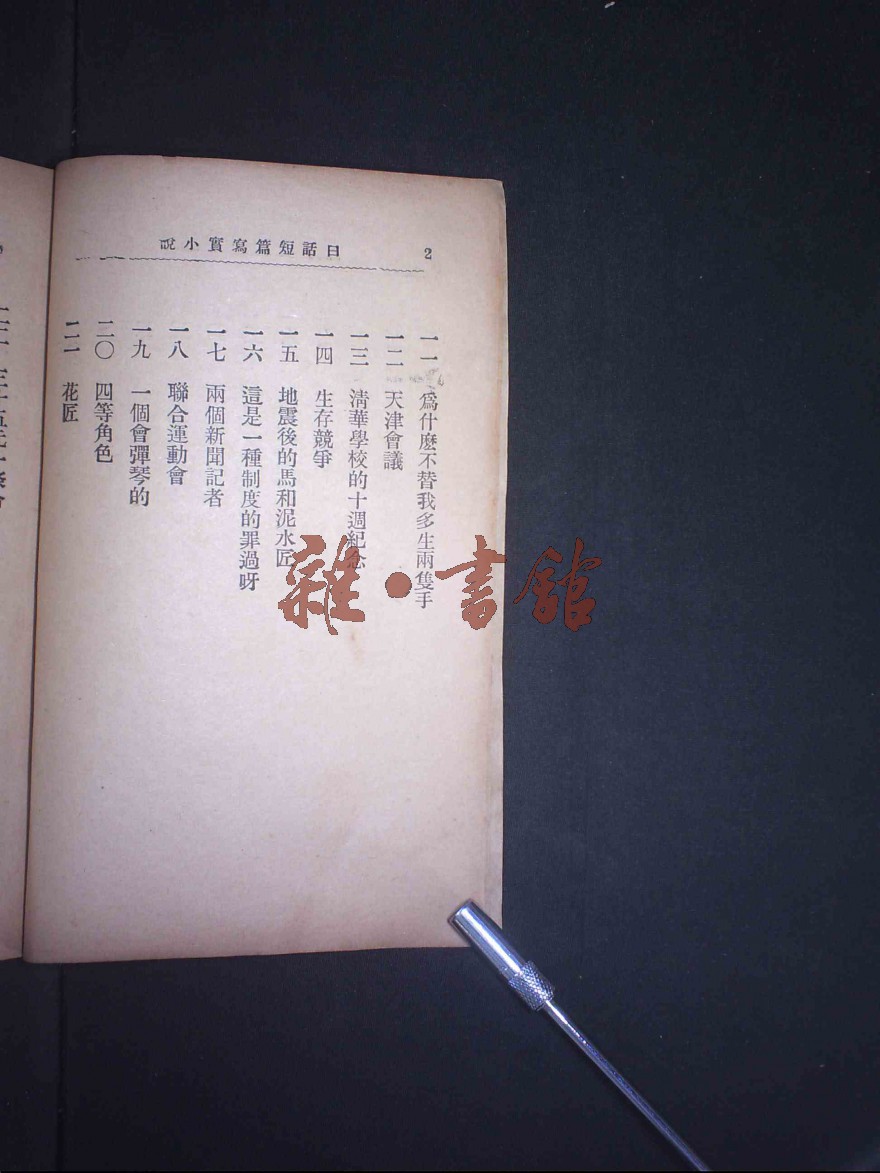 2 白話短篇寫實小說
一一 爲什麼不替我多生兩隻手
一二 天津會議
一三 清華學校的十週紀念
一四 生存競爭
一五 地震後的馬和泥水匠
一六 這是一種制度的罪過呀
一七 兩個新聞記者
一八 聯合運動會
一九 一個會彈琴的
二〇 四等角色
二一 花匠
雜·書館